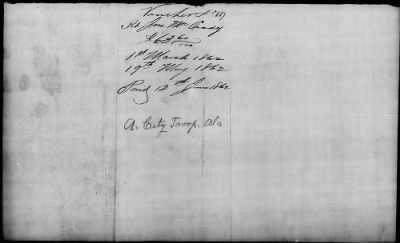 Voucher
Jno McCrady
$63 60/100
1st March 1862
19th May 1862
Paid 12th June 1862
A. City Troop. Ala